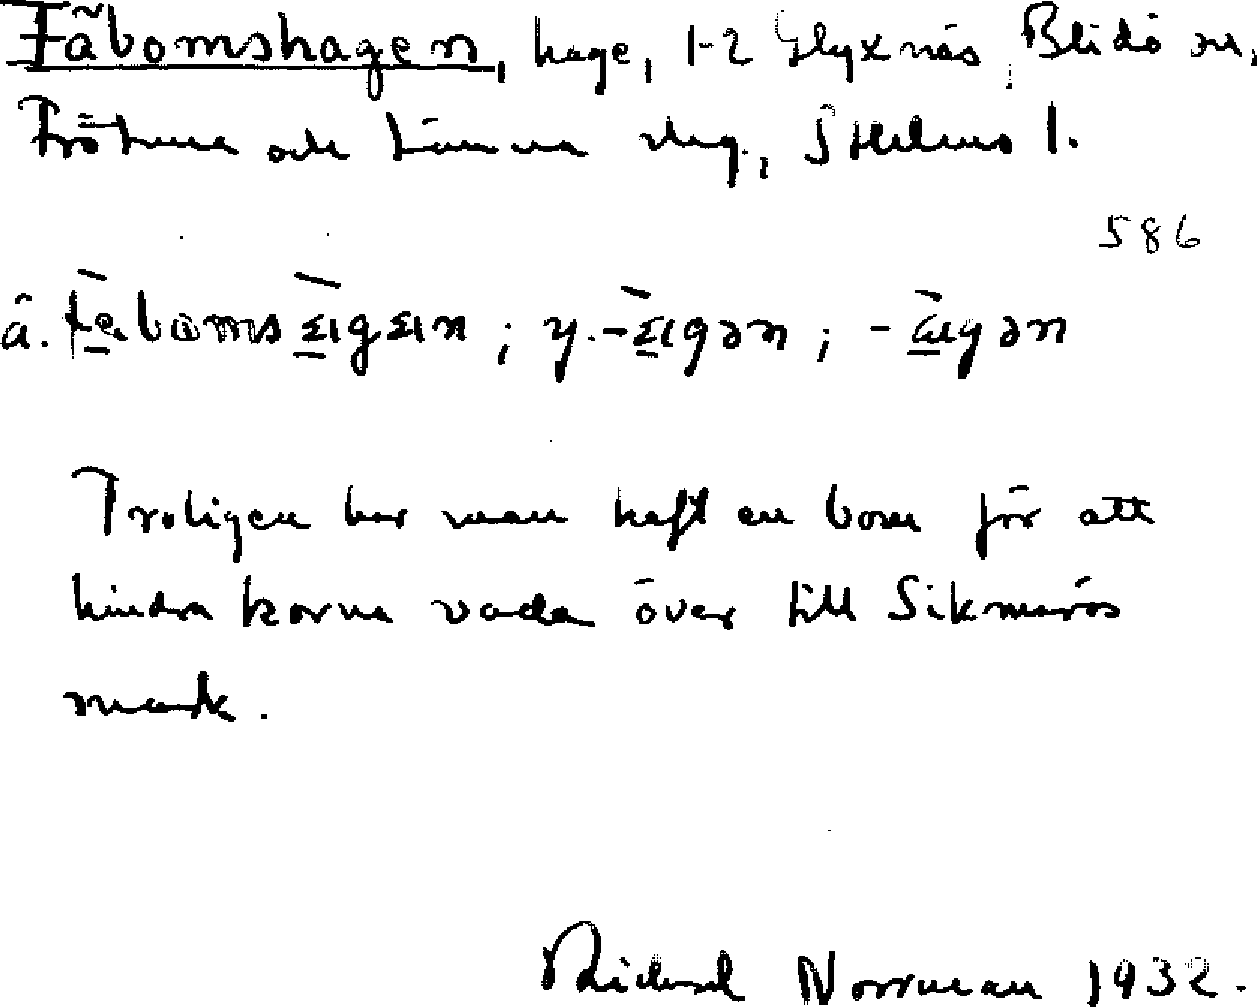 Fåbomshagen, hage, 1-2 Glyxnäs, Blidö sn,
Frötuna och Länna skg, Sthlms l.
586
å. fɛ̀boms ɛ̀ıgɛın ; y. -ɛ̀ıgən ; -ɑ̀ıgən
Troligen har man haft en bom för att
hindra korna vada över till Sikmarös
mark.
Richard Norrman 1932.